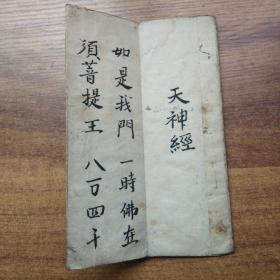 天神經
如是我門 一時佛在
須菩提王 八万四千